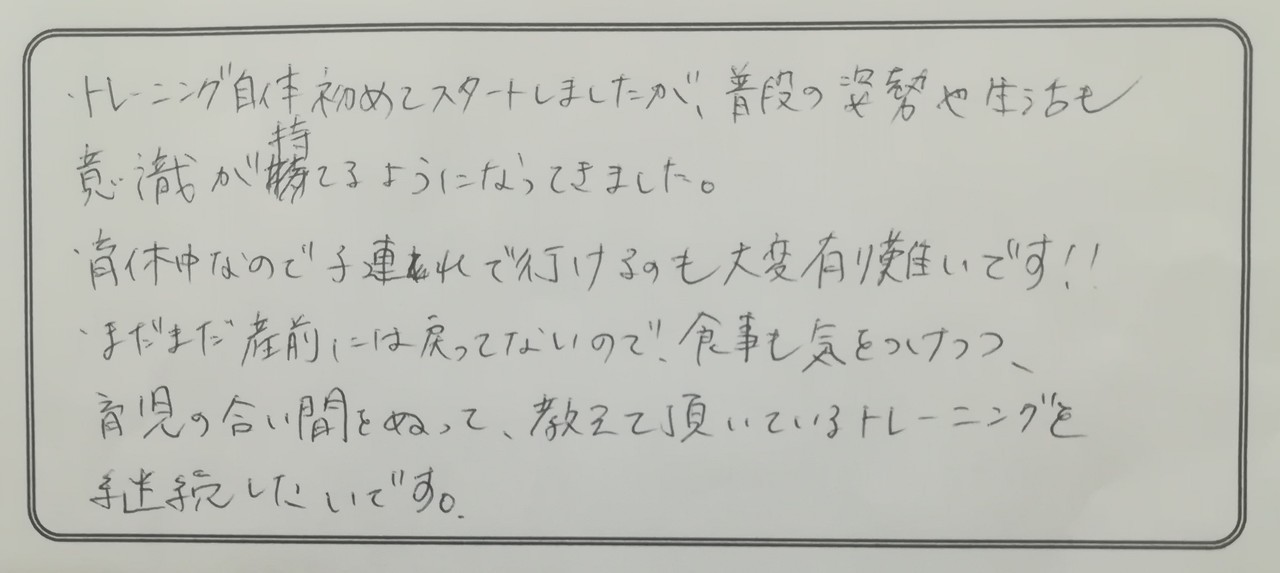 ・トレーニング自体初めてスタートしましたが、普段の姿勢や生活も
意識が持てるようになってきました。
・育休中なので子連れで行けるのも大変有り難いです!!
・まだまだ産前には戻ってないので、食事も気をつけつつ、
育児の合い間をぬって、教えて頂いているトレーニングを
継続したいです。